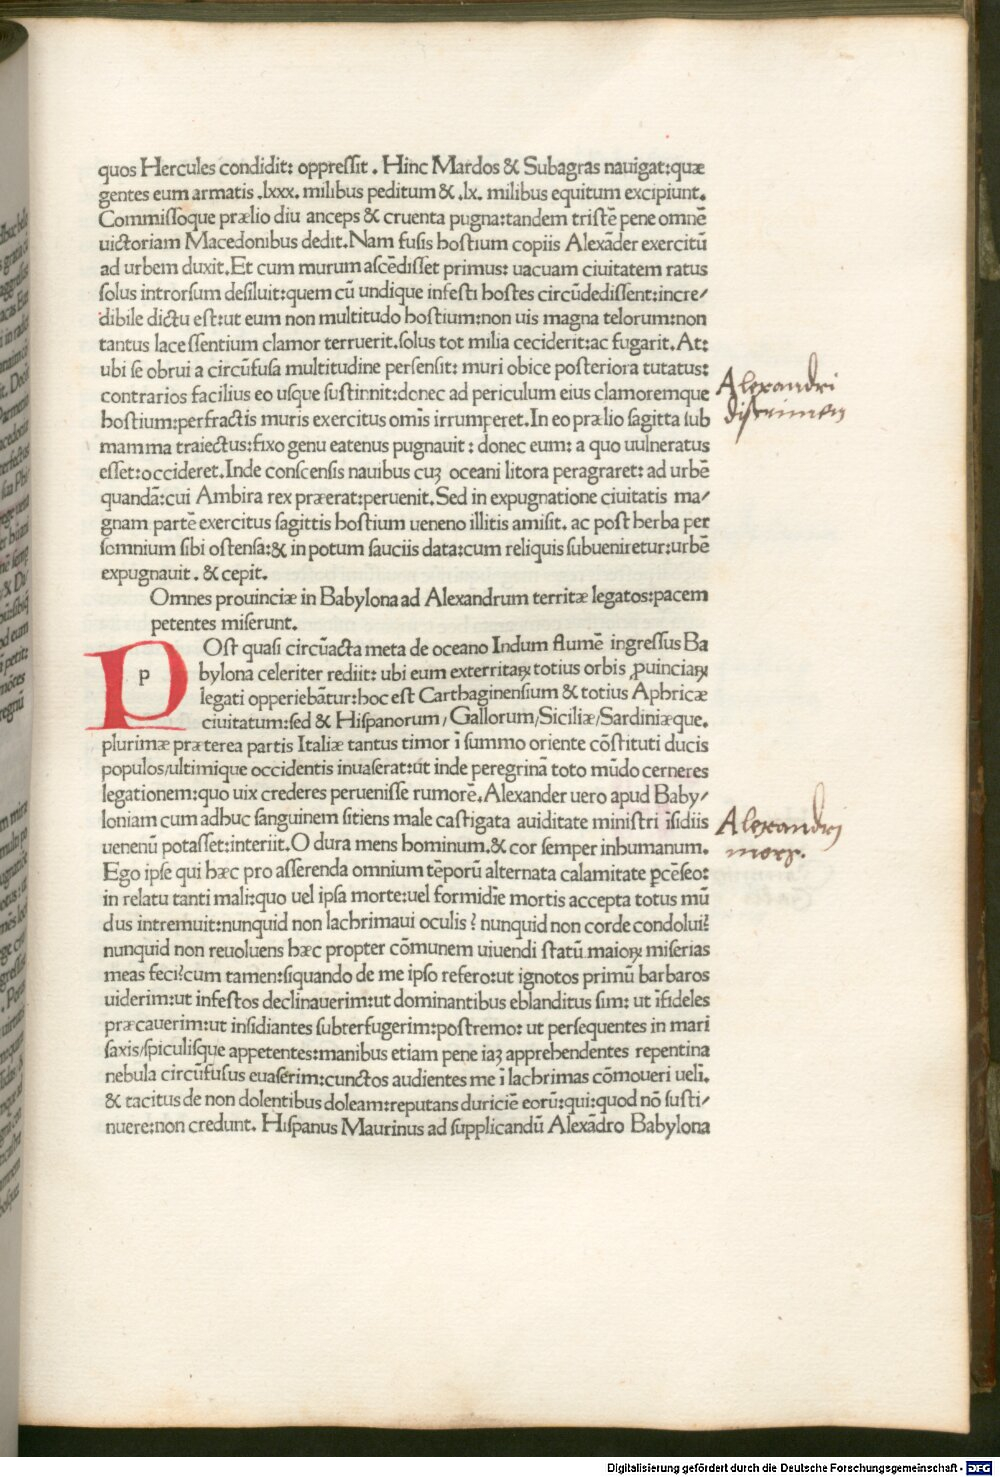 quos Hercules condidit: oppreſſit . Hinc Mardos & Subagras nauigat:quæ
gentes eum armatis .lxxx. milibus peditum & .lx. milibus equitum excipiunt.
Commiſſoque prælio diu anceps & cruenta pugna:tandem triſtē pene omnē
uictoriam Macedonibus dedit.Nam fuſis hoſtium copiis Alexāder exercitū
ad urbem duxit.Et cum murum aſcēdiſſet primus: uacuam ciuitatem ratus
ſolus introrſum deſiluit:quem cū undique infeſti hoſtes circūdediſſent:incre/
dibile dictu eſt:ut eum non multitudo hoſtium:non uis magna telorum:non
tantus laceſſentium clamor terruerit.ſolus tot milia ceciderit:ac fugarit. At:
ubi ſe obrui a circūfuſa multitudine perſenſit: muri obice poſteriora tutatus:
contrarios facilius eo uſque ſuſtinnit:donec ad periculum eius clamoremque
hoſtium:perfractis muris exercitus omīs irrumperet.In eo prælio ſagitta ſub
mamma traiectus:fixo genu eatenus pugnauit : donec eum: a quo uulneratus
eſſet:occideret.Inde conſcenſis nauibus cuꝫ oceani litora peragraret: ad urbē
quandā:cui Ambira rex præerat:peruenit.Sed in expugnatione ciuitatis ma/
gnam partē exercitus ſagittis hoſtium ueneno illitis amiſit. ac poſt herba per
ſomnium ſibi oſtenſa:& in potum ſauciis data:cum reliquis ſubueniretur:urbē
expugnauit . & cepit.
Omnes prouinciæ in Babylona ad Alexandrum territæ legatos:pacem
petentes miſerunt.
P Oſt quaſi circūacta meta de oceano Indum flumē ingreſſus Ba
bylona celeriter rediit: ubi eum exterritaꝝ totius orbis ꝓuinciaꝝ
legati opperiebātur:hoc eſt Carthaginenſium & totius Aphricæ
ciuitatum:ſed & Hiſpanorum/ Gallorum/Siciliæ/Sardiniæque.
plurimæ præterea partis Italiæ tantus timor ī ſummo oriente cōſtituti ducis
populos/ultimique occidentis inuaſerat:ut inde peregrinā toto mūdo cerneres
legationem:quo uix crederes perueniſſe rumorē.Alexander uero apud Baby/
loniam cum adhuc ſanguinem ſitiens male caſtigata auiditate miniſtri īſidiis
uenenū potaſſet:interiit.O dura mens hominum.& cor ſemper inhumanum.
Ego ipſe qui hæc pro aſſerenda omnium tēporū alternata calamitate ꝑcēſeo:
in relatu tanti mali:quo uel ipſa morte:uel formidīe mortis accepta totus mū
dus intremuit:nunquid non lachrimaui oculis ? nunquid non corde condolui?
nunquid non reuoluens hæc propter cōmunem uiuendi ſtatū maioꝝ miſerias
meas feci?cum tamen:ſiquando de me ipſo refero:ut ignotos primū barbaros
uiderim:ut infeſtos declinauerim:ut dominantibus eblanditus ſim: ut īfideles
præcauerim:ut inſidiantes ſubterfugerim:poſtremo: ut perſequentes in mari
ſaxis/ſpiculiſque appetentes:manibus etiam pene iaꝫ apprehendentes repentina
nebula circūfuſus euaſerim:cunctos audientes me ī lachrimas cōmoueri uelī.
& tacitus de non dolentibus doleam:reputans duriciē eorū:qui:quod nō ſuſti/
nuere:non credunt. Hiſpanus Maurinus ad ſupplicandū Alexādro Babylona
Alexandri
diſcrimen
Alexandri
mors.
Digitalisierung gefördert durch die Deutsche Forschungsgemeinschaft - DFG